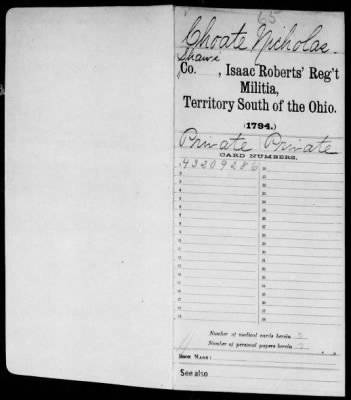 65
Choate Nicholas.
Shaw's
Co. , Isaac Roberts' Reg't
Militia,
Territory South of the Ohio.
(1794.)
Private Private
CARD NUMBERS.
Number of medical cards herein
Number of personal papers herein
BOOK MARK:
See also